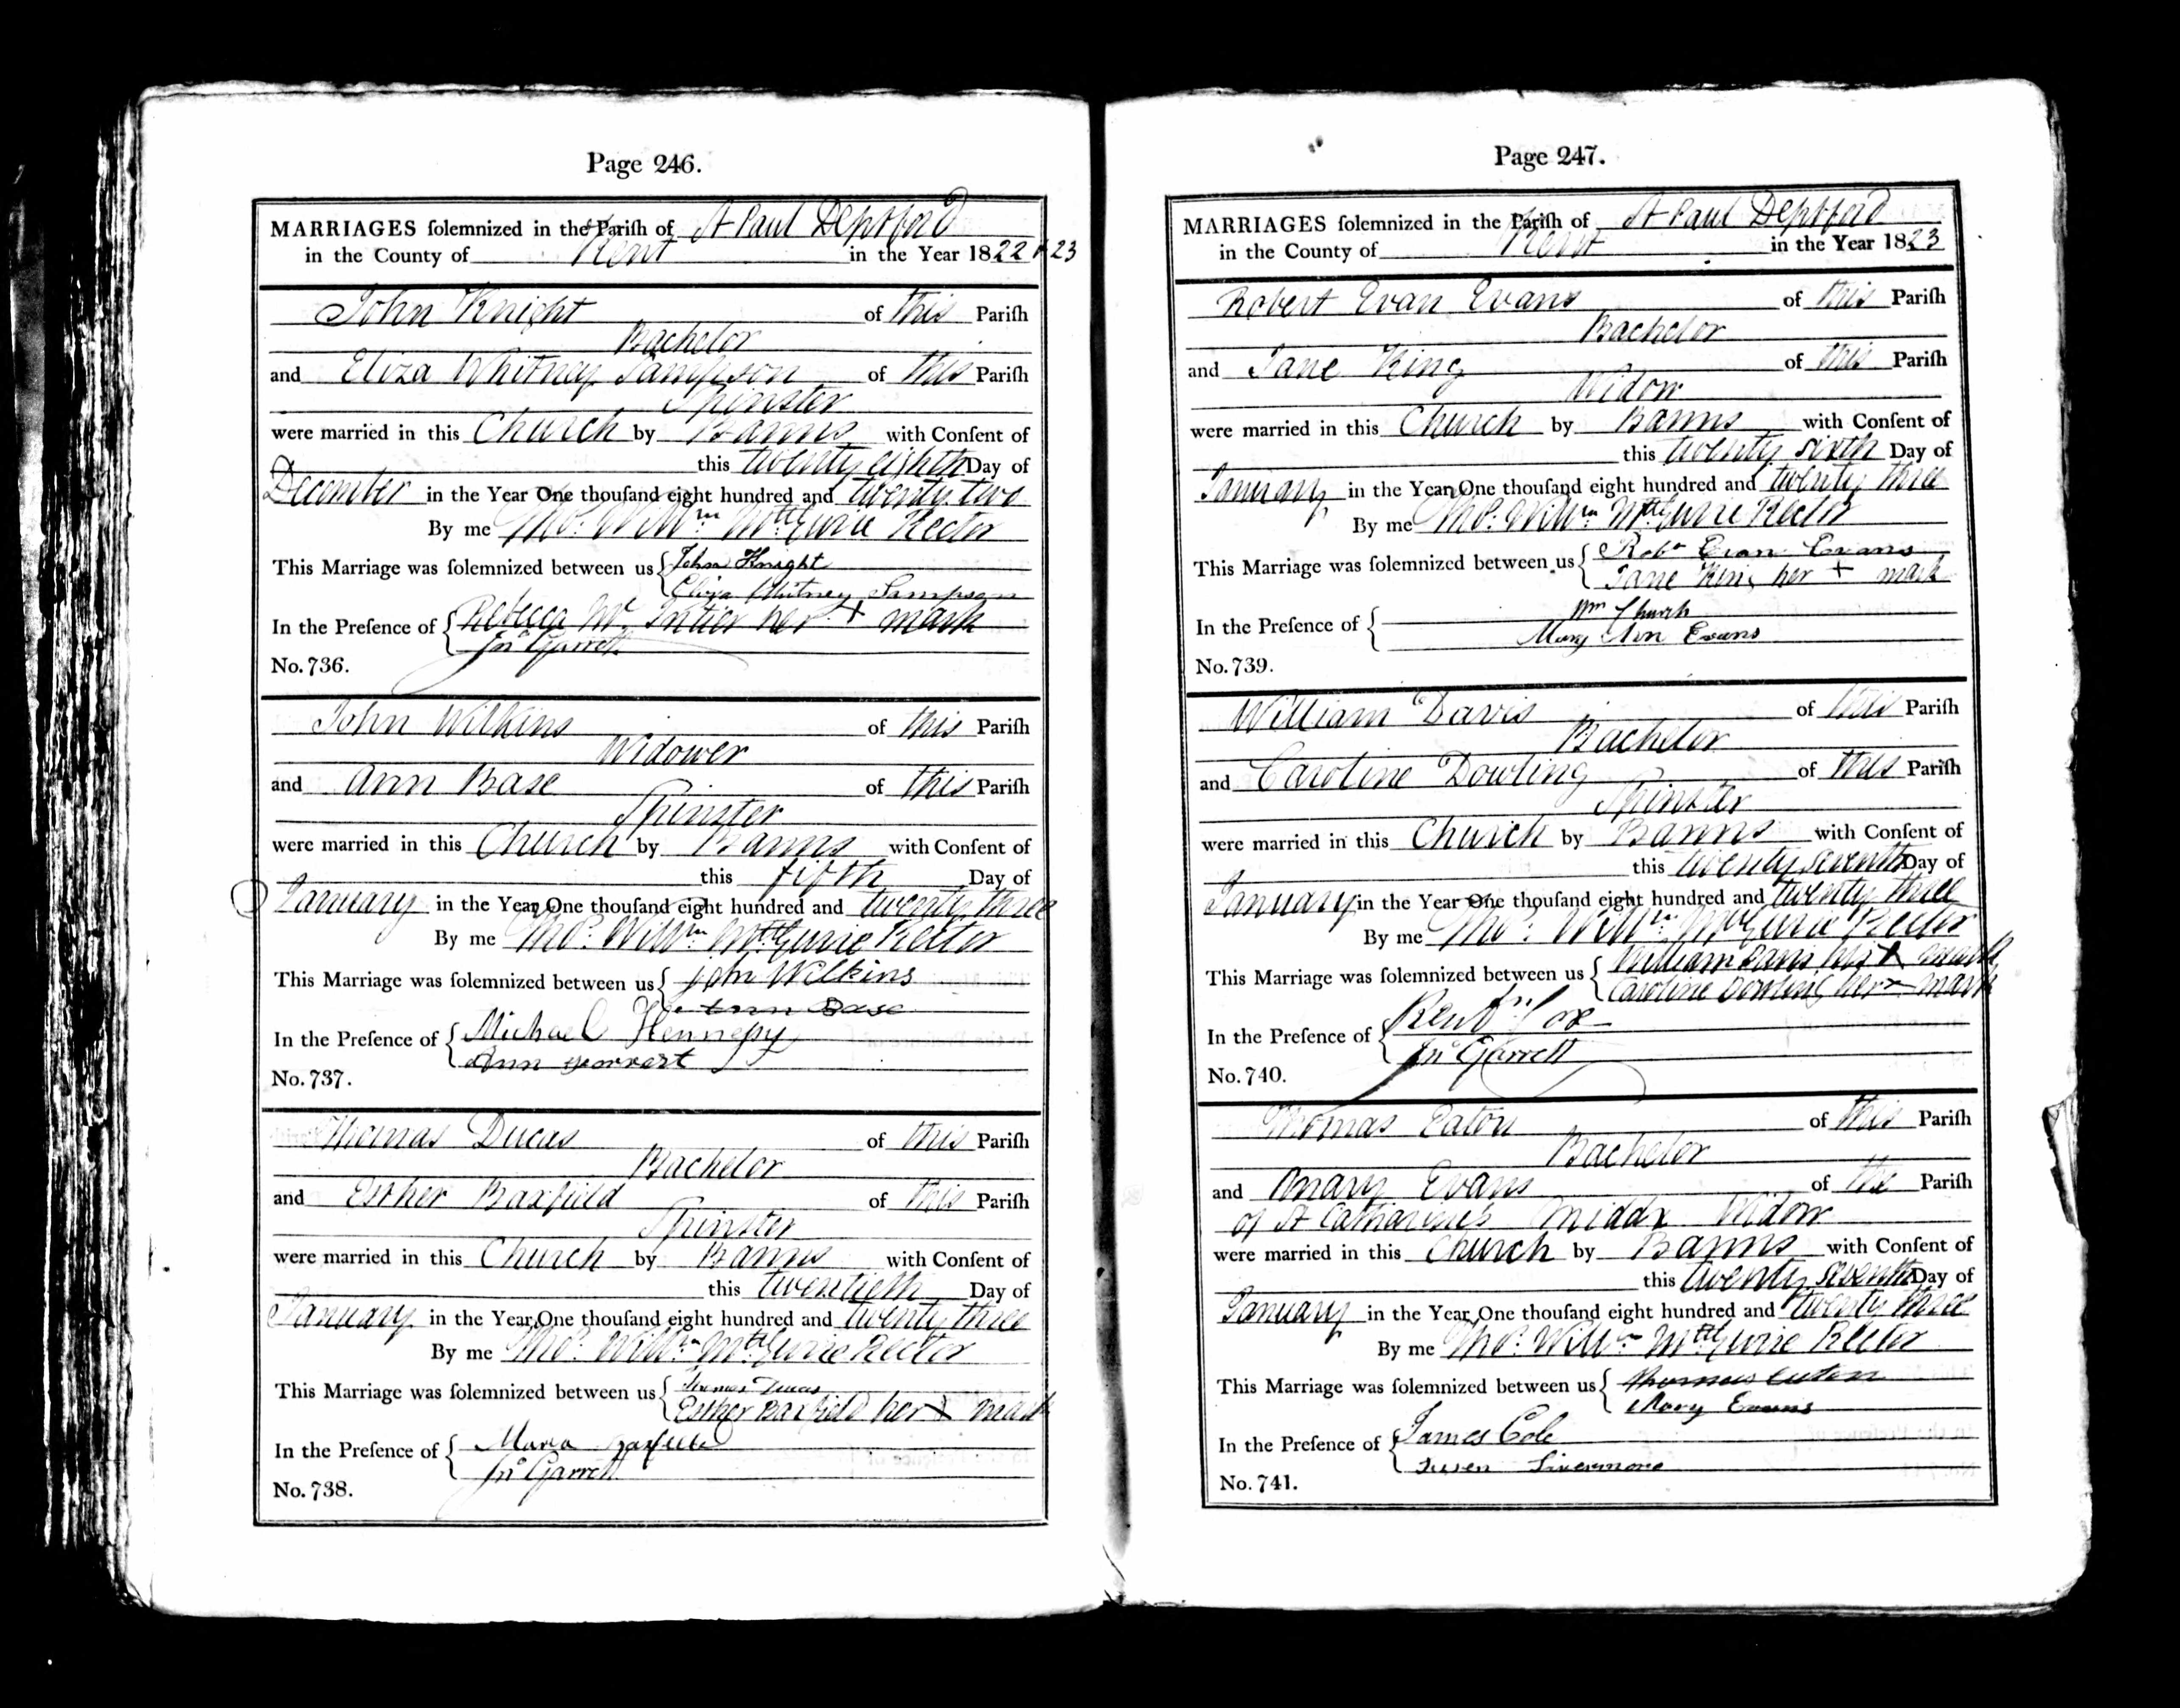 Page 246.
MARRIAGES ſolemnized in the Pariſh of St Paul Deptford
in the County of Kent in the Year 1822 & 23
John Knight of this Pariſh
Bachelor
and Eliza Whitney Sampson of this Pariſh
Spinster
were married in this Church by Banns with Conſent of
this twenty eighth Day of
December in the Year One thouſand eight hundred and twenty two
By me Thos. Willm. Rector
This Marriage was ſolemnized between us John Knight
Eliza Whitney Sampson
In the Preſence of Rebecca Mc Intier her + mark
Jno Garrett
No. 736.
John Wilkins of this Pariſh
Widower
and Ann Base of this Pariſh
Spinster
were married in this Church by Banns with Conſent of
this fifth Day of
January in the Year One thouſand eight hundred and twenty three
By me Thos. Willm. Rector
This Marriage was ſolemnized between us john Wilkins
Ann Base
In the Preſence of Michael Hennepy
Ann
No. 737.
Thomas Ducas of this Pariſh
Bachelor
and Esther Baxfield of this Pariſh
Spinster
were married in this Church by Banns with Conſent of
this twentieth Day of
January in the Year One thouſand eight hundred and twenty three
By me Thos. Willm. Rector
This Marriage was ſolemnized between us Thomas Ducas
Esther Baxfield her + mark
In the Preſence of Maria
Jno Garrett
No. 738.
Page 247.
MARRIAGES ſolemnized in the Pariſh of St Paul Deptford
in the County of Kent in the Year 1823
Robert Evan Evans of this Pariſh
Bachelor
and Jane King of this Pariſh
Widow
were married in this Church by Banns with Conſent of
this twenty sixth Day of
January in the Year One thouſand eight hundred and twenty three
By me Thos. Willm. Rector
This Marriage was ſolemnized between us Robt Evan Evans
Jane King her + mark
In the Preſence of Wm Church
Mary Ann Evans
No. 739.
William Davis of this Pariſh
Bachelor
and Caroline Dowling of this Pariſh
Spinster
were married in this Church by Banns with Conſent of
this twenty seventh Day of
January in the Year One thouſand eight hundred and twenty three
By me Thos. Willm. Rector
This Marriage was ſolemnized between us William Davis his X mark
Caroline Dowling her x mark
In the Preſence of Benjn Cox
Jno Garrett
No. 740.
Thomas Eaton of this Pariſh
Bachelor
and Mary Evans of the Pariſh
of St Catharine's Middx Widow
were married in this Church by Banns with Conſent of
this twenty seventh Day of
January in the Year One thouſand eight hundred and twenty three
By me Thos. Willm. Rector
This Marriage was ſolemnized between us Thomas Eaton
Mary Evans
In the Preſence of James Cole
Susen Livermore
No. 741.